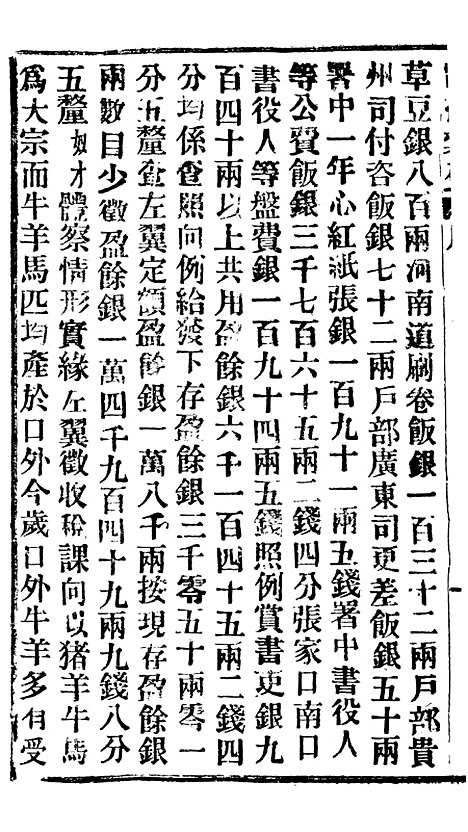 草豆銀八百兩河南道刷卷飯銀一百三十二兩戶部貴
州司付咨飯銀七十二兩戶部廣東司更差飯銀五十兩
署中一年心紅紙張銀一百九十一兩五錢署中書役人
等公費飯銀三千七百六十五兩二錢四分張家口南口
書役人等盤費銀一百九十四兩五錢照例賞書吏銀九
百四十兩以上共用盈餘銀六千一百四十五兩二錢四
分均係查照向例給發下存盈餘銀三千零五十兩零一
分五釐查左翼定額盈餘銀一萬八千兩按現存盈餘銀
兩數目少徵盈餘銀一萬四千九百四十九兩九錢八分
五釐奴才體察情形實緣左翼徵收稅課向以猪羊牛馬
爲大宗而牛羊馬匹均產於口外今歲口外牛羊多有受